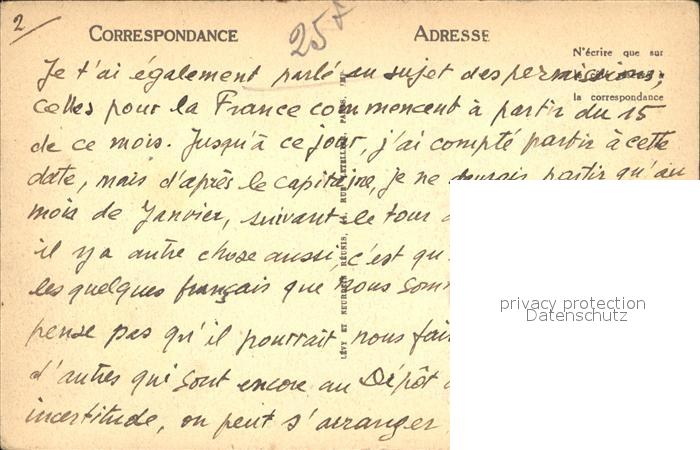 2
25 F
CORRESPONDANCE
ADRESSE
N'écrire que sur
la correspondance
Je t'ai également parlé au sujet des permissions;
celles pour la France commencent à partir du 15
de ce mois. Jusqu'à ce jour, j'ai compté partir à cette
date, mais d'après le capitaine, je ne devrais partir qu'au
mois de Janvier, suivant le tour
il y a autre chose aussi, c'est qu
les quelques français que nous som
pense pas qu'il pourrait nous fai
d'autres qui sont encore au Dépôt
incertitude, on peut s'arranger
LÉVY ET NEURDEIN RÉUNIS, 44, RUE LETELLIER, PARIS
privacy protection
Datenschutz